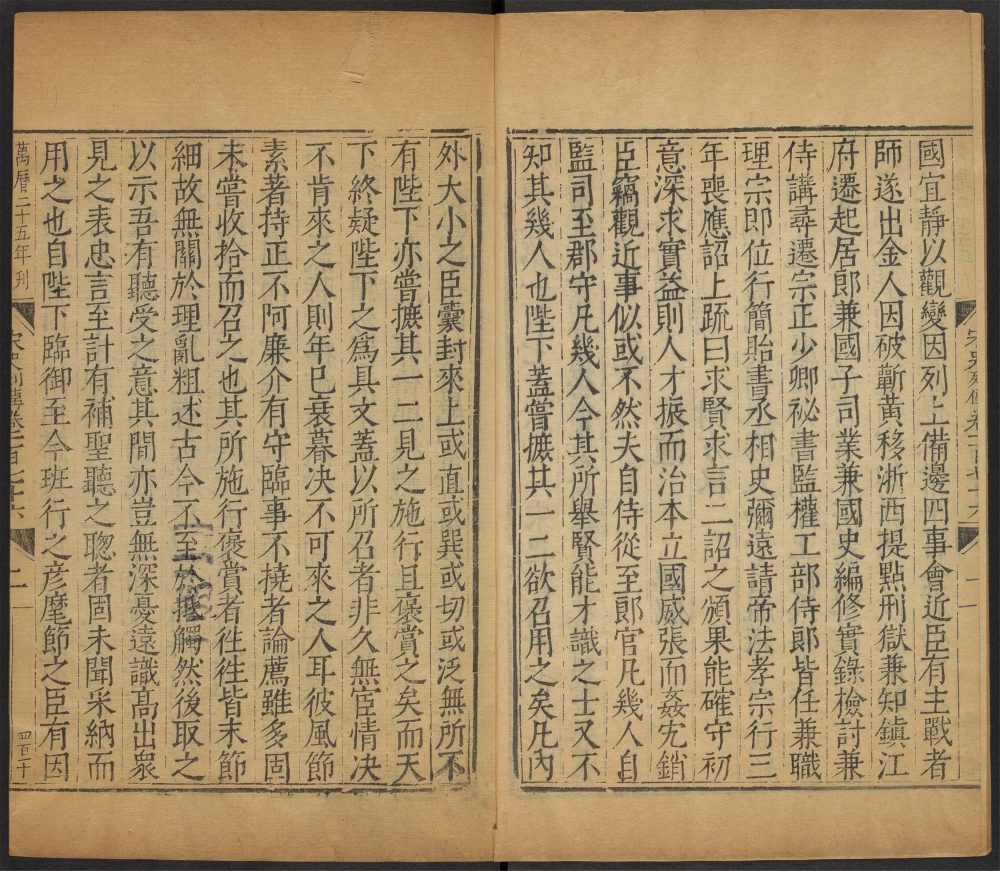 國宜靜以觀變因列上備邊四事會近臣有主戰者
師遂出金人因破蘄黃移浙西提點刑獄兼知鎮江
府遷起居郎兼國子司業兼國史編修實錄檢討兼
侍講尋遷宗正少卿祕書監權工部侍郎皆任兼職
理宗即位行簡貽書丞相史彌遠請帝法孝宗行三
年喪應詔上疏曰求賢求言二詔之頒果能確守初
意深求實益則人才振而治本立國威張而姦宄銷
臣竊觀近事似或不然夫自侍從至郎官凡幾人自
監司至郡守凡幾人今其所舉賢能才識之士又不
知其幾人也陛下蓋嘗摭其一二欲召用之矣凡內
外大小之臣囊封來上或直或巽或切或泛無所不
有陛下亦嘗摭其一二見之施行且褒賞之矣而天
下終疑陛下之爲具文蓋以所召者非久無宦情決
不肯來之人則年已衰暮決不可來之人耳彼風節
素著持正不阿廉介有守臨事不撓者論薦雖多固
未嘗收拾而召之也其所施行褒賞者徃徃皆末節
細故無關於理亂粗述古今不至於抵觸然後取之
以示吾有聽受之意其間亦豈無深憂遠識高出衆
見之表忠言至計有補聖聽之聰者固未聞采納而
用之也自陛下臨御至今班行之彥麾節之臣有因
萬曆二十五年刊
宋史列傳卷一百七十六
二
四百十